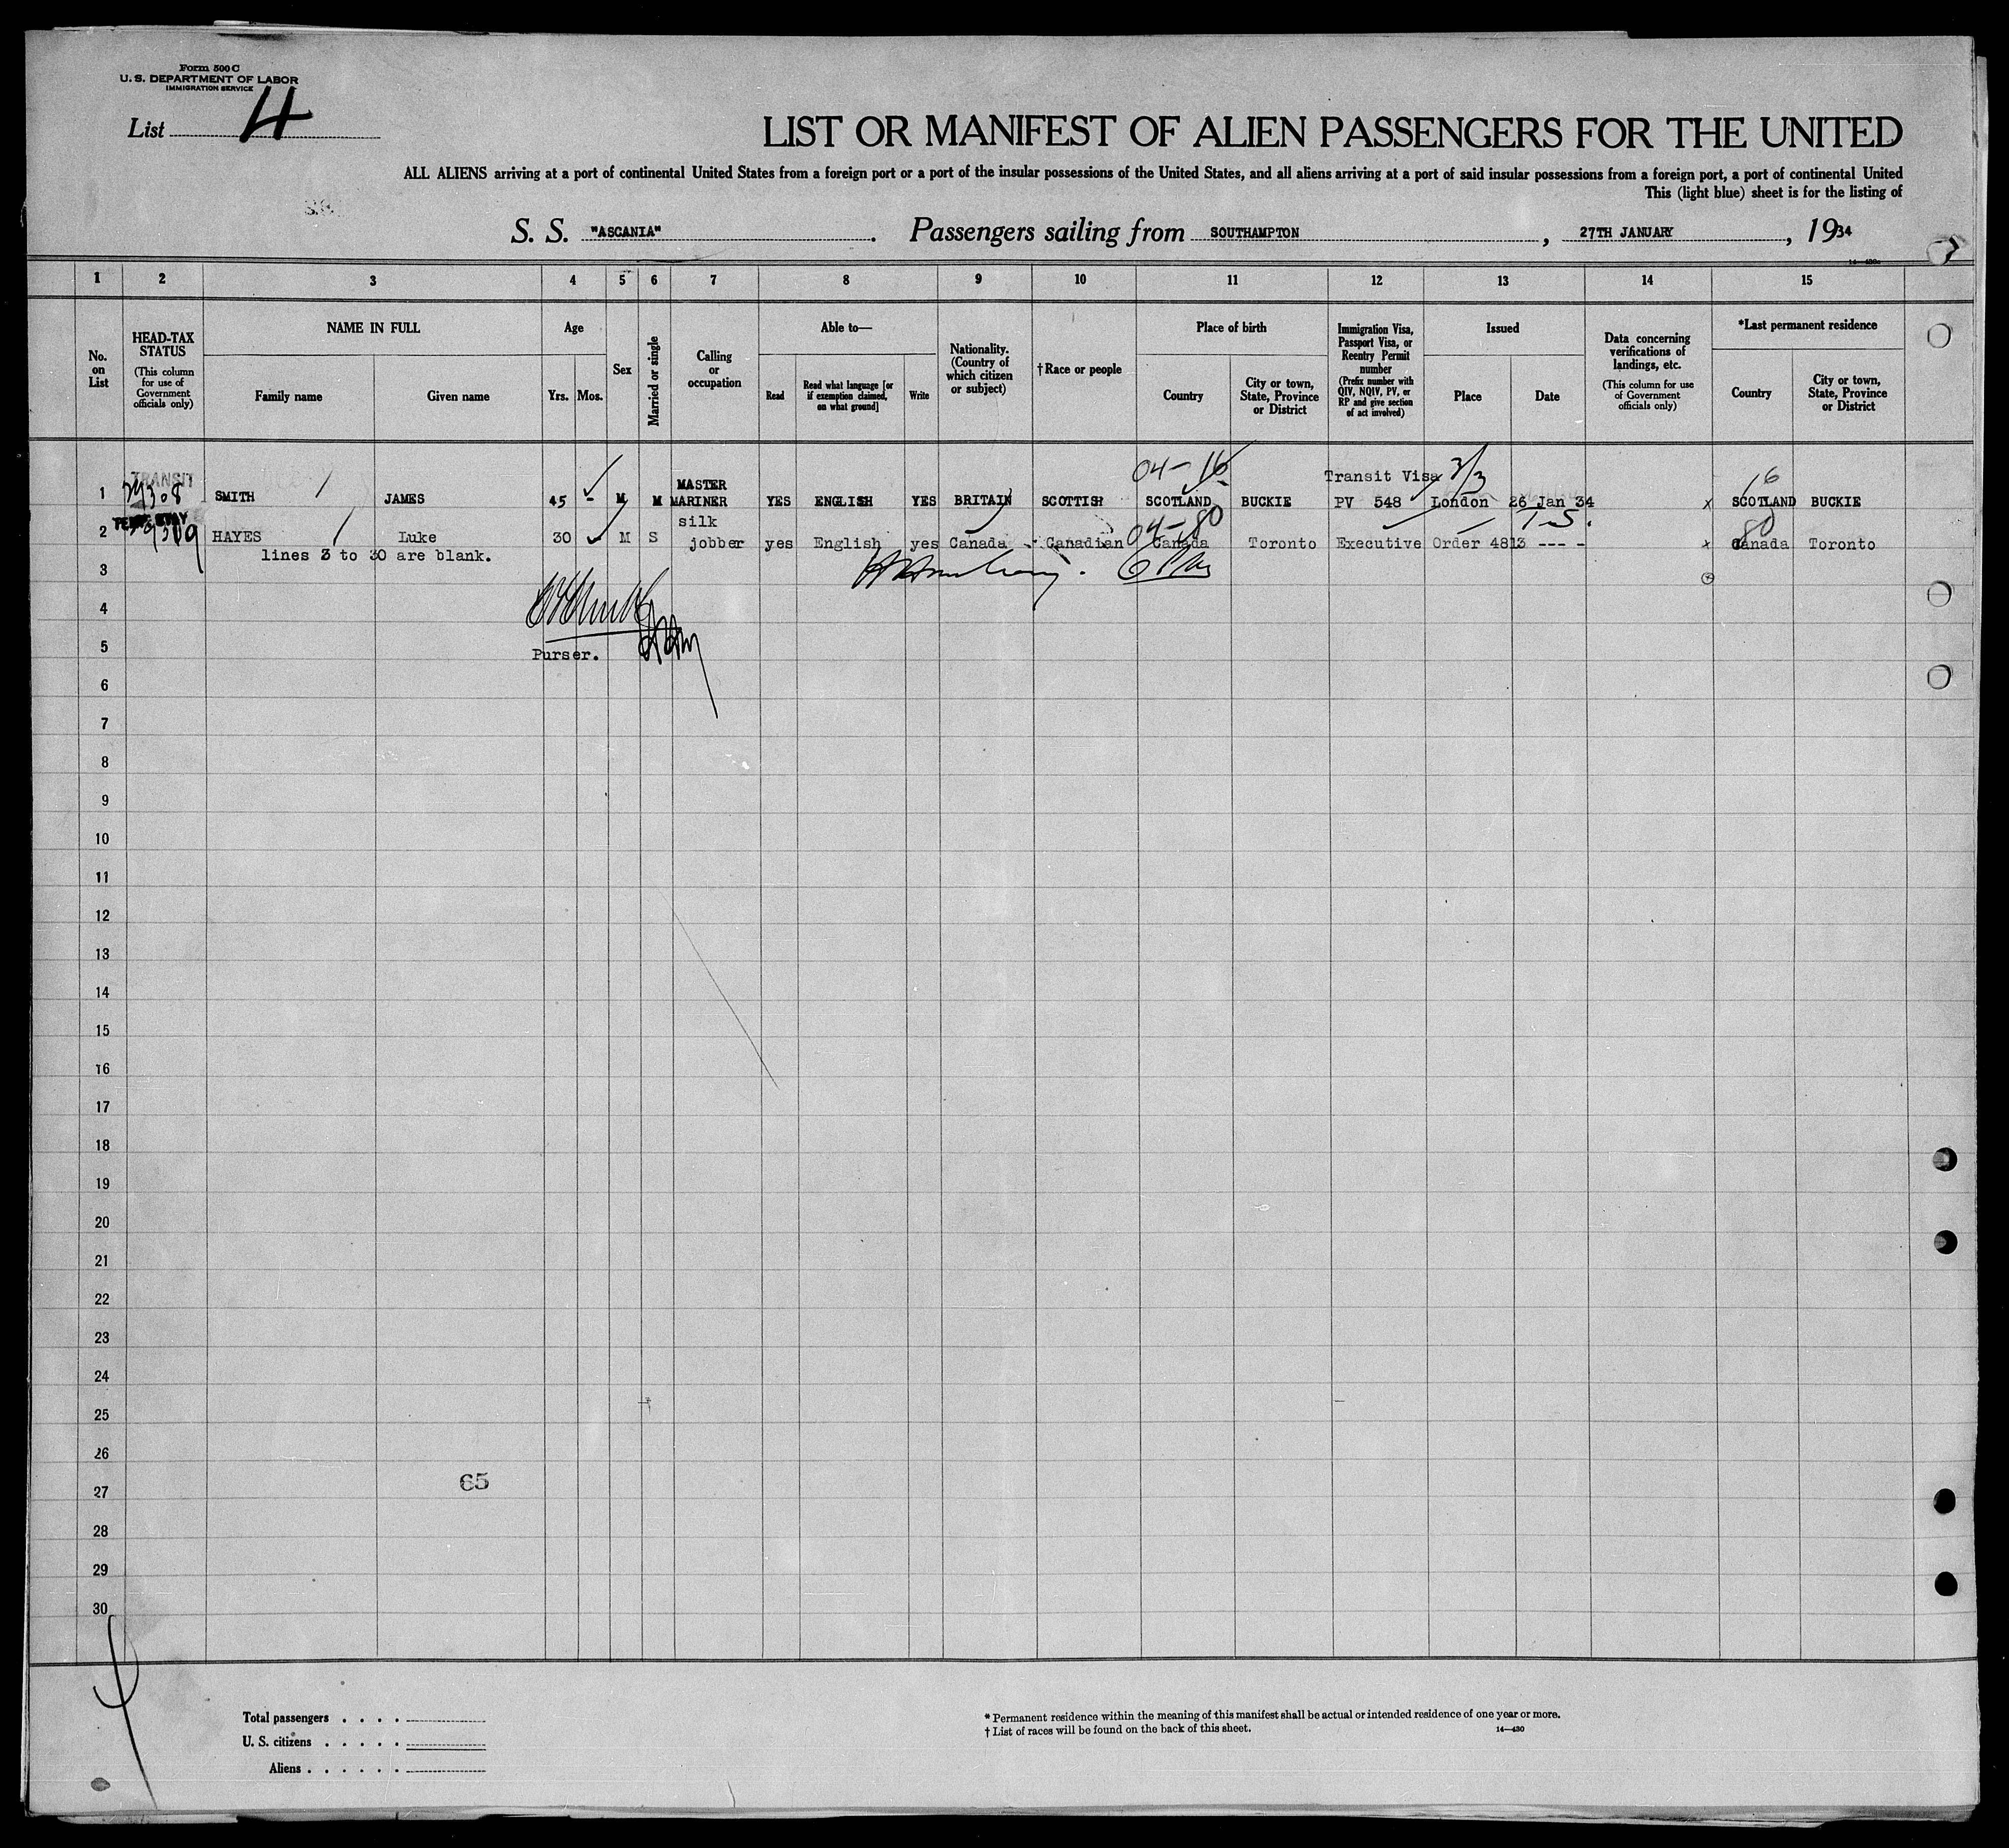 Form 500 C
U. S. DEPARTMENT OF LABOR
IMMIGRATION SERVICE
List 4
LIST OR MANIFEST OF ALIEN PASSENGERS FOR THE UNITED
ALL ALIENS arriving at a port of continental United States from a foreign port or a port of the insular possessions of the United States, and all aliens arriving at a port of said insular possessions from a foreign port, a port of continental United
This (light blue) sheet is for the listing of
S. S. "ASCANIA". Passengers sailing from SOUTHAMPTON, 27TH JANUARY, 1934
1 2 3 4 5 6 7 8 9 10 11 12 13 14 15
No. on List
HEAD-TAX STATUS
(This column for use of Government officials only)
NAME IN FULL
Family name
Given name
Age
Yrs.
Mos.
Sex
Married or single
Calling or occupation
Able to—
Read
Read what language [or if exemption claimed, on what ground]
Write
Nationality. (Country of which citizen or subject)
†Race or people
Place of birth
Country
City or town, State, Province or District
Immigration Visa, Passport Visa, or Reentry Permit number
(Prefix number with QIV, NQIV, PV, or RP and give section of act involved)
Issued
Place
Date
Data concerning verifications of landings, etc.
(This column for use of Government officials only)
*Last permanent residence
Country
City or town, State, Province or District
TRANSIT 04-16 Transit Visa 3/3 16
1 SMITH JAMES 45 - M M MASTER MARINER YES ENGLISH YES BRITAIN SCOTTISH SCOTLAND BUCKIE PV 548 London 26 Jan 34 x SCOTLAND BUCKIE
04-80 T-S. 80
2 HAYES Luke 30 M S silk jobber yes English yes Canada Canadian Canada Toronto Executive Order 4813 ---- x Canada Toronto
lines 3 to 30 are blank.
3
4
5 Purser.
6
7
8
9
10
11
12
13
14
15
16
17
18
19
20
21
22
23
24
25
26
65
27
28
29
30
Total passengers . . . .
U. S. citizens . . . . .
Aliens . . . . . .
* Permanent residence within the meaning of this manifest shall be actual or intended residence of one year or more.
† List of races will be found on the back of this sheet. 14—430